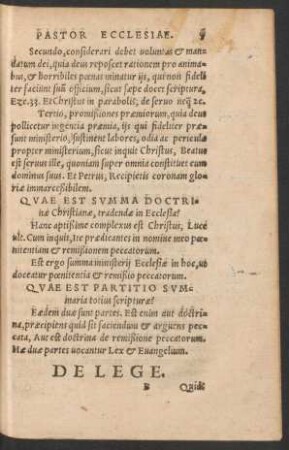 PASTOR ECCLESIAE.
Secundo, considerari debet uoluntas & man-
datum dei, quia deus reposcet rationem pro anima-
bus, & horribiles pœnas minatur ijs, qui non fideli-
ter faciunt suũ officium, sicut sæpe docet scriptura,
Eze.33. Et Christus in parabolis, de seruo neq̃ &c.
Tertio, promissiones præmiorum, quia deus
pollicetur ingentia præmia, ijs qui fideliter præ-
sunt ministerio, sustinent labores, odia ac pericula
propter ministerium, sicut inquit Christus, Beatus
est seruus ille, quoniam super omnia constituet eum
dominus suus. Et Petrus, Recipietis coronam glo-
riæ immarcessibilem.
QVAE EST SVMMA DOCTRI-
næ Christianæ, tradendæ in Ecclesia?
Hanc aptissime complexus est Christus, Lucæ
ult. Cum inquit, ite prædicantes in nomine meo pœ-
nitentiam & remissionem peccatorum.
Est ergo summa ministerij Ecclesiæ in hoc, ut
doceatur pœnitentia & remissio peccatorum.
QVAE EST PARTITIO SVM-
maria totius scripturæ?
Eædem duæ sunt partes. Est enim aut doctri-
na, præcipiens quid sit faciendum & arguens pec-
cata, Aut est doctrina de remissione peccatorum.
Hæ duæ partes uocantur Lex & Euangelium.
DE LEGE.
B Quid